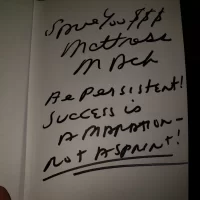 Save You $$$
Mattress
Mack
Be Persistent!
Success is
A MARATHON -
Not A SPRINT!